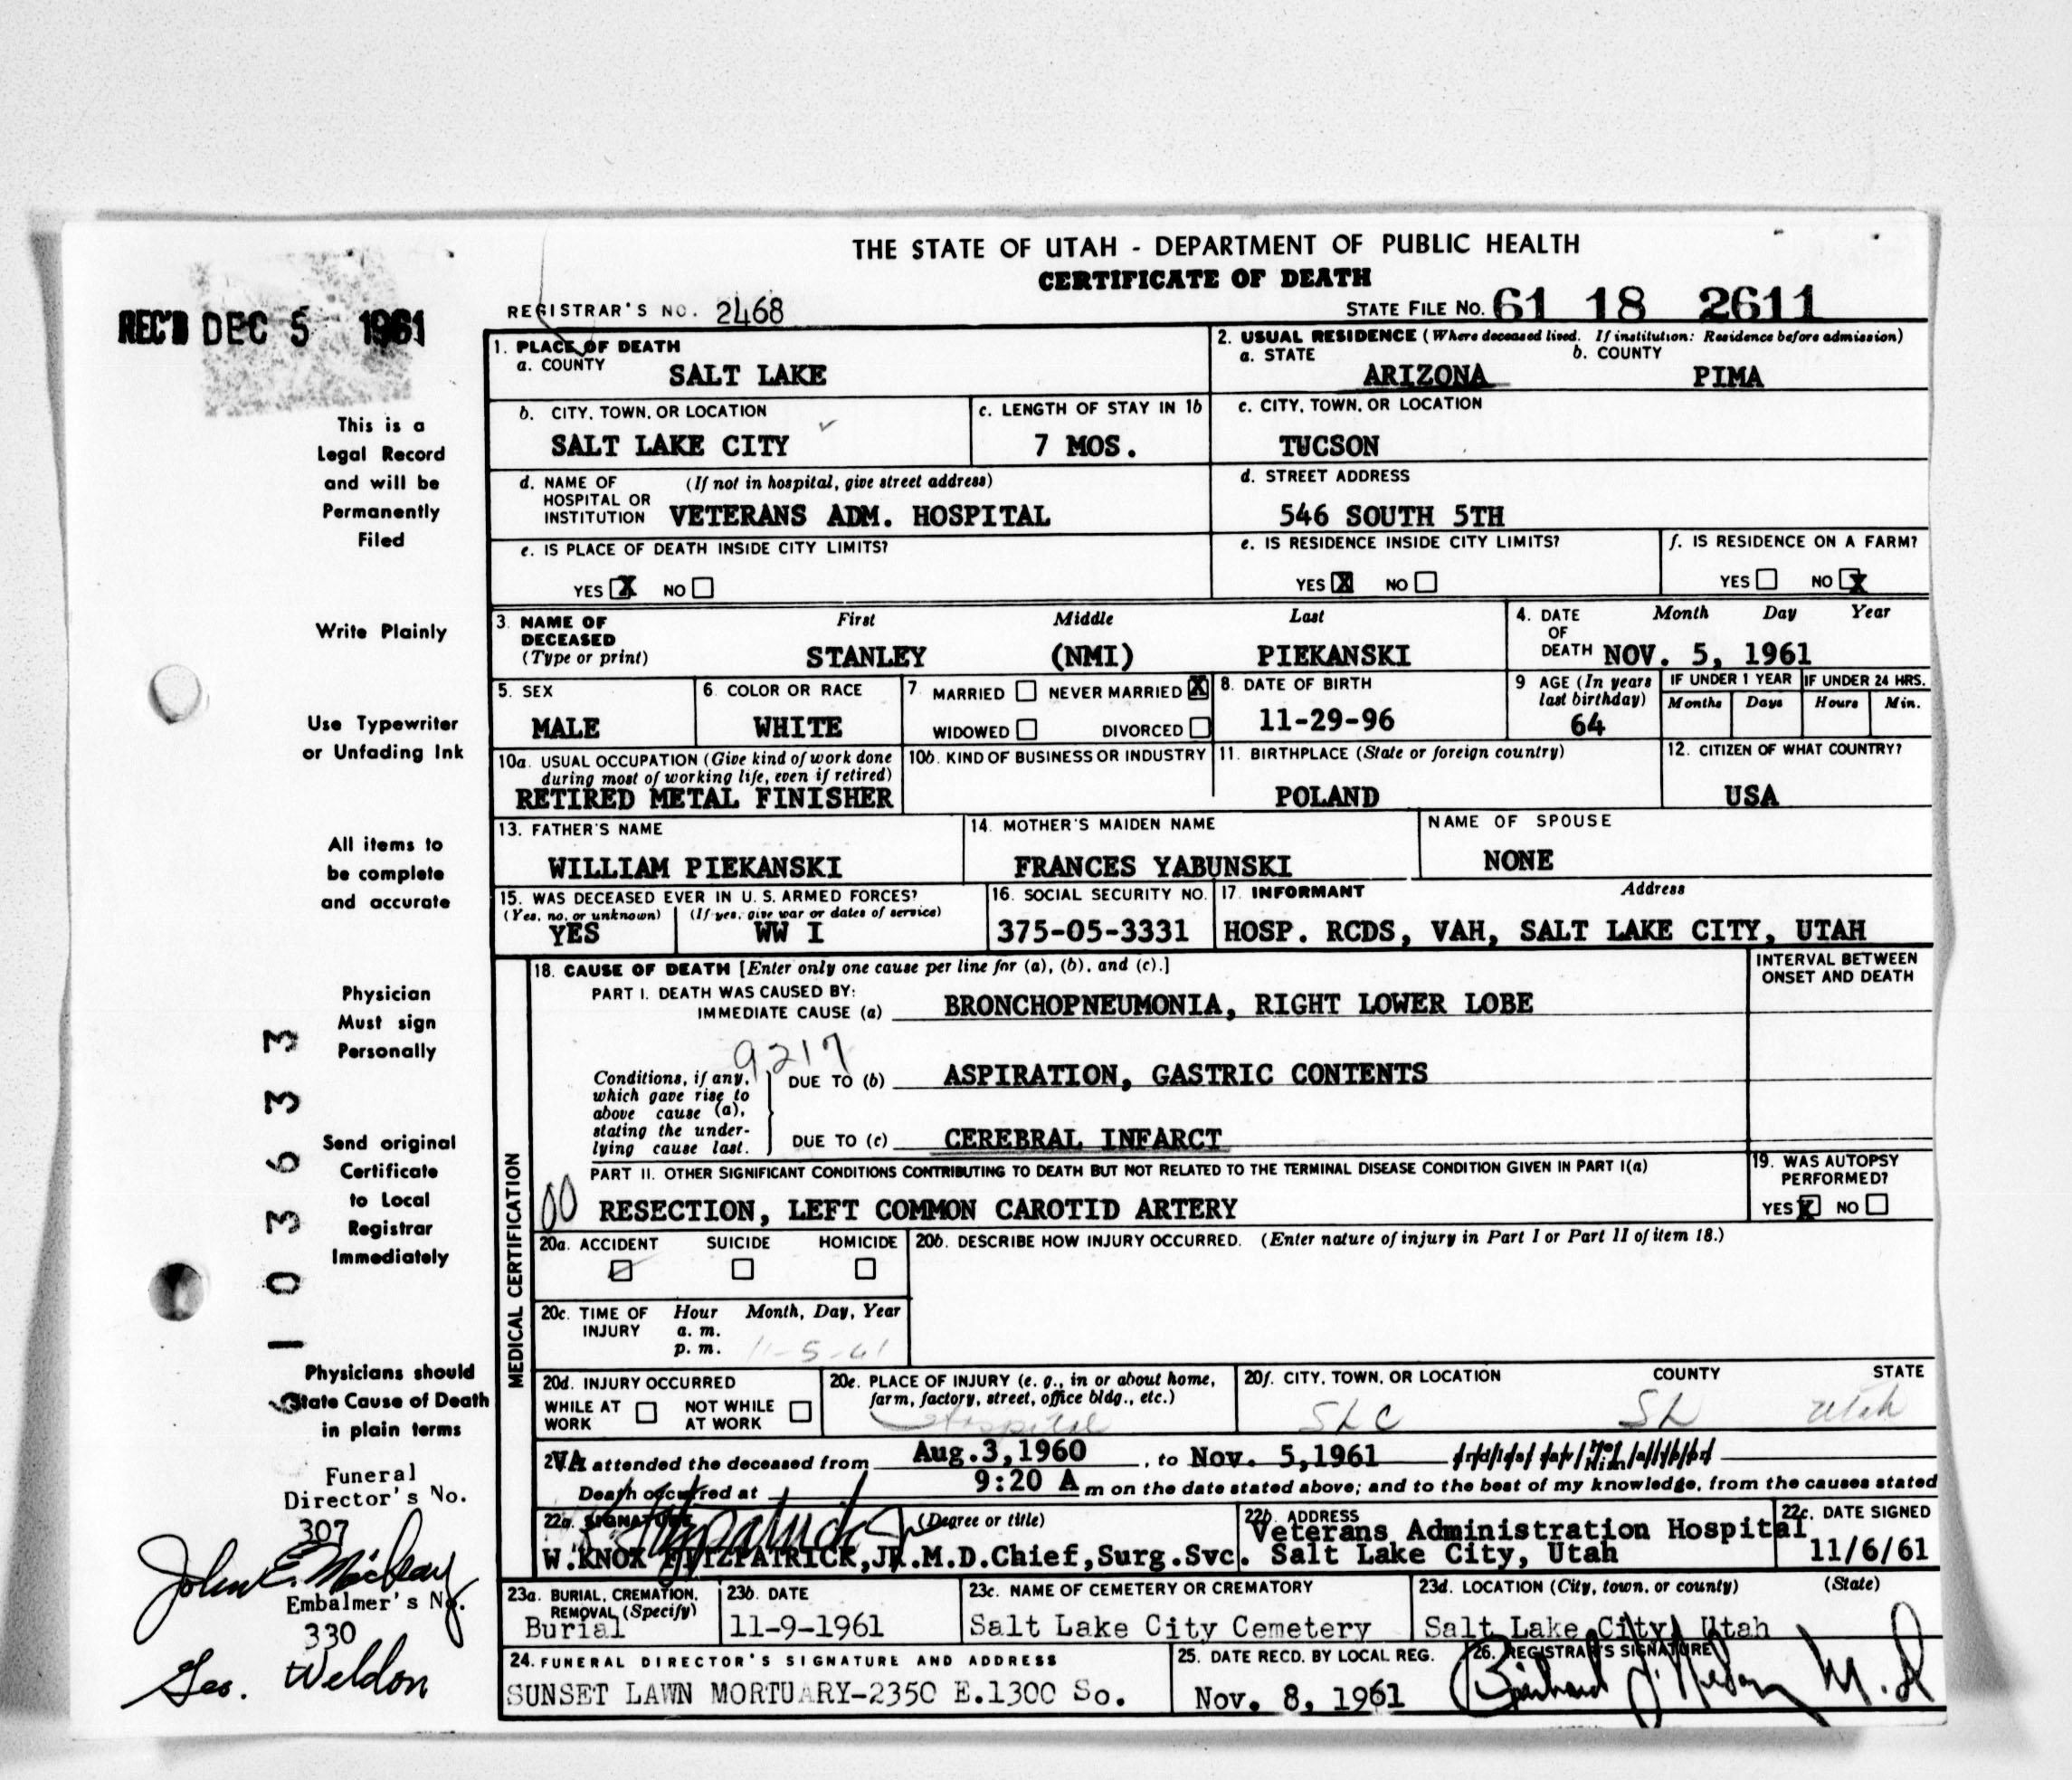 THE STATE OF UTAH - DEPARTMENT OF PUBLIC HEALTH
CERTIFICATE OF DEATH
REGISTRAR'S NO. 2468
STATE FILE NO. 61 18 2611
REC'D DEC 5 1961
1. PLACE OF DEATH
a. COUNTY
SALT LAKE
2. USUAL RESIDENCE (Where deceased lived. If institution: Residence before admission)
a. STATE b. COUNTY
ARIZONA PIMA
b. CITY, TOWN, OR LOCATION
SALT LAKE CITY
c. LENGTH OF STAY IN 1b
7 MOS.
c. CITY, TOWN, OR LOCATION
TUCSON
d. NAME OF (If not in hospital, give street address)
HOSPITAL OR
INSTITUTION VETERANS ADM. HOSPITAL
d. STREET ADDRESS
546 SOUTH 5TH
e. IS PLACE OF DEATH INSIDE CITY LIMITS?
YES X NO
e. IS RESIDENCE INSIDE CITY LIMITS?
YES X NO
f. IS RESIDENCE ON A FARM?
YES NO X
3. NAME OF DECEASED (Type or print)
First Middle Last
STANLEY (NMI) PIEKANSKI
4. DATE OF DEATH Month Day Year
NOV. 5, 1961
5. SEX
MALE
6. COLOR OR RACE
WHITE
7. MARRIED NEVER MARRIED X
WIDOWED DIVORCED
8. DATE OF BIRTH
11-29-96
9 AGE (In years last birthday)
64
IF UNDER 1 YEAR IF UNDER 24 HRS.
Months Days Hours Min.
10a. USUAL OCCUPATION (Give kind of work done
during most of working life, even if retired)
RETIRED METAL FINISHER
10b. KIND OF BUSINESS OR INDUSTRY
11. BIRTHPLACE (State or foreign country)
POLAND
12. CITIZEN OF WHAT COUNTRY?
USA
13. FATHER'S NAME
WILLIAM PIEKANSKI
14. MOTHER'S MAIDEN NAME
FRANCES YABUNSKI
NAME OF SPOUSE
NONE
15. WAS DECEASED EVER IN U. S. ARMED FORCES?
(Yes, no, or unknown) (If yes, give war or dates of service)
YES WW I
16. SOCIAL SECURITY NO.
375-05-3331
17. INFORMANT Address
HOSP. RCDS, VAH, SALT LAKE CITY, UTAH
MEDICAL CERTIFICATION
18. CAUSE OF DEATH [Enter only one cause per line for (a), (b), and (c).]
INTERVAL BETWEEN
ONSET AND DEATH
PART I. DEATH WAS CAUSED BY:
IMMEDIATE CAUSE (a) BRONCHOPNEUMONIA, RIGHT LOWER LOBE
9217
Conditions, if any,
which gave rise to
above cause (a),
stating the under-
lying cause last.
DUE TO (b) ASPIRATION, GASTRIC CONTENTS
DUE TO (c) CEREBRAL INFARCT
PART II. OTHER SIGNIFICANT CONDITIONS CONTRIBUTING TO DEATH BUT NOT RELATED TO THE TERMINAL DISEASE CONDITION GIVEN IN PART I(a)
00 RESECTION, LEFT COMMON CAROTID ARTERY
19. WAS AUTOPSY
PERFORMED?
YES X NO
20a. ACCIDENT SUICIDE HOMICIDE
20b. DESCRIBE HOW INJURY OCCURRED. (Enter nature of injury in Part I or Part II of item 18.)
20c. TIME OF INJURY Hour Month, Day, Year
a. m.
p. m. 11-5-61
20d. INJURY OCCURRED
WHILE AT WORK NOT WHILE AT WORK
20e. PLACE OF INJURY (e. g., in or about home,
farm, factory, street, office bldg., etc.)
Hospital
20f. CITY, TOWN, OR LOCATION COUNTY STATE
SLC SL Utah
VA attended the deceased from Aug.3,1960, to Nov. 5,1961
Death occurred at 9:20 A m on the date stated above; and to the best of my knowledge, from the causes stated
22a. SIGNATURE (Degree or title)
W.KNOX FITZPATRICK,JR.M.D.Chief,Surg.Svc.
22b. ADDRESS
Veterans Administration Hospital
Salt Lake City, Utah
22c. DATE SIGNED
11/6/61
23a. BURIAL, CREMATION,
REMOVAL (Specify)
Burial
23b. DATE
11-9-1961
23c. NAME OF CEMETERY OR CREMATORY
Salt Lake City Cemetery
23d. LOCATION (City, town, or county) (State)
Salt Lake City, Utah
24. FUNERAL DIRECTOR'S SIGNATURE AND ADDRESS
SUNSET LAWN MORTUARY-2350 E.1300 So.
25. DATE RECD. BY LOCAL REG.
Nov. 8, 1961
26. REGISTRAR'S SIGNATURE
M.D
This is a
Legal Record
and will be
Permanently
Filed
Write Plainly
Use Typewriter
or Unfading Ink
All items to
be complete
and accurate
Physician
Must sign
Personally
Send original
Certificate
to Local
Registrar
Immediately
Physicians should
State Cause of Death
in plain terms
Funeral
Director's No.
307
John E.
Embalmer's No.
330
Geo. Weldon
6 1 0 3 6 3 3